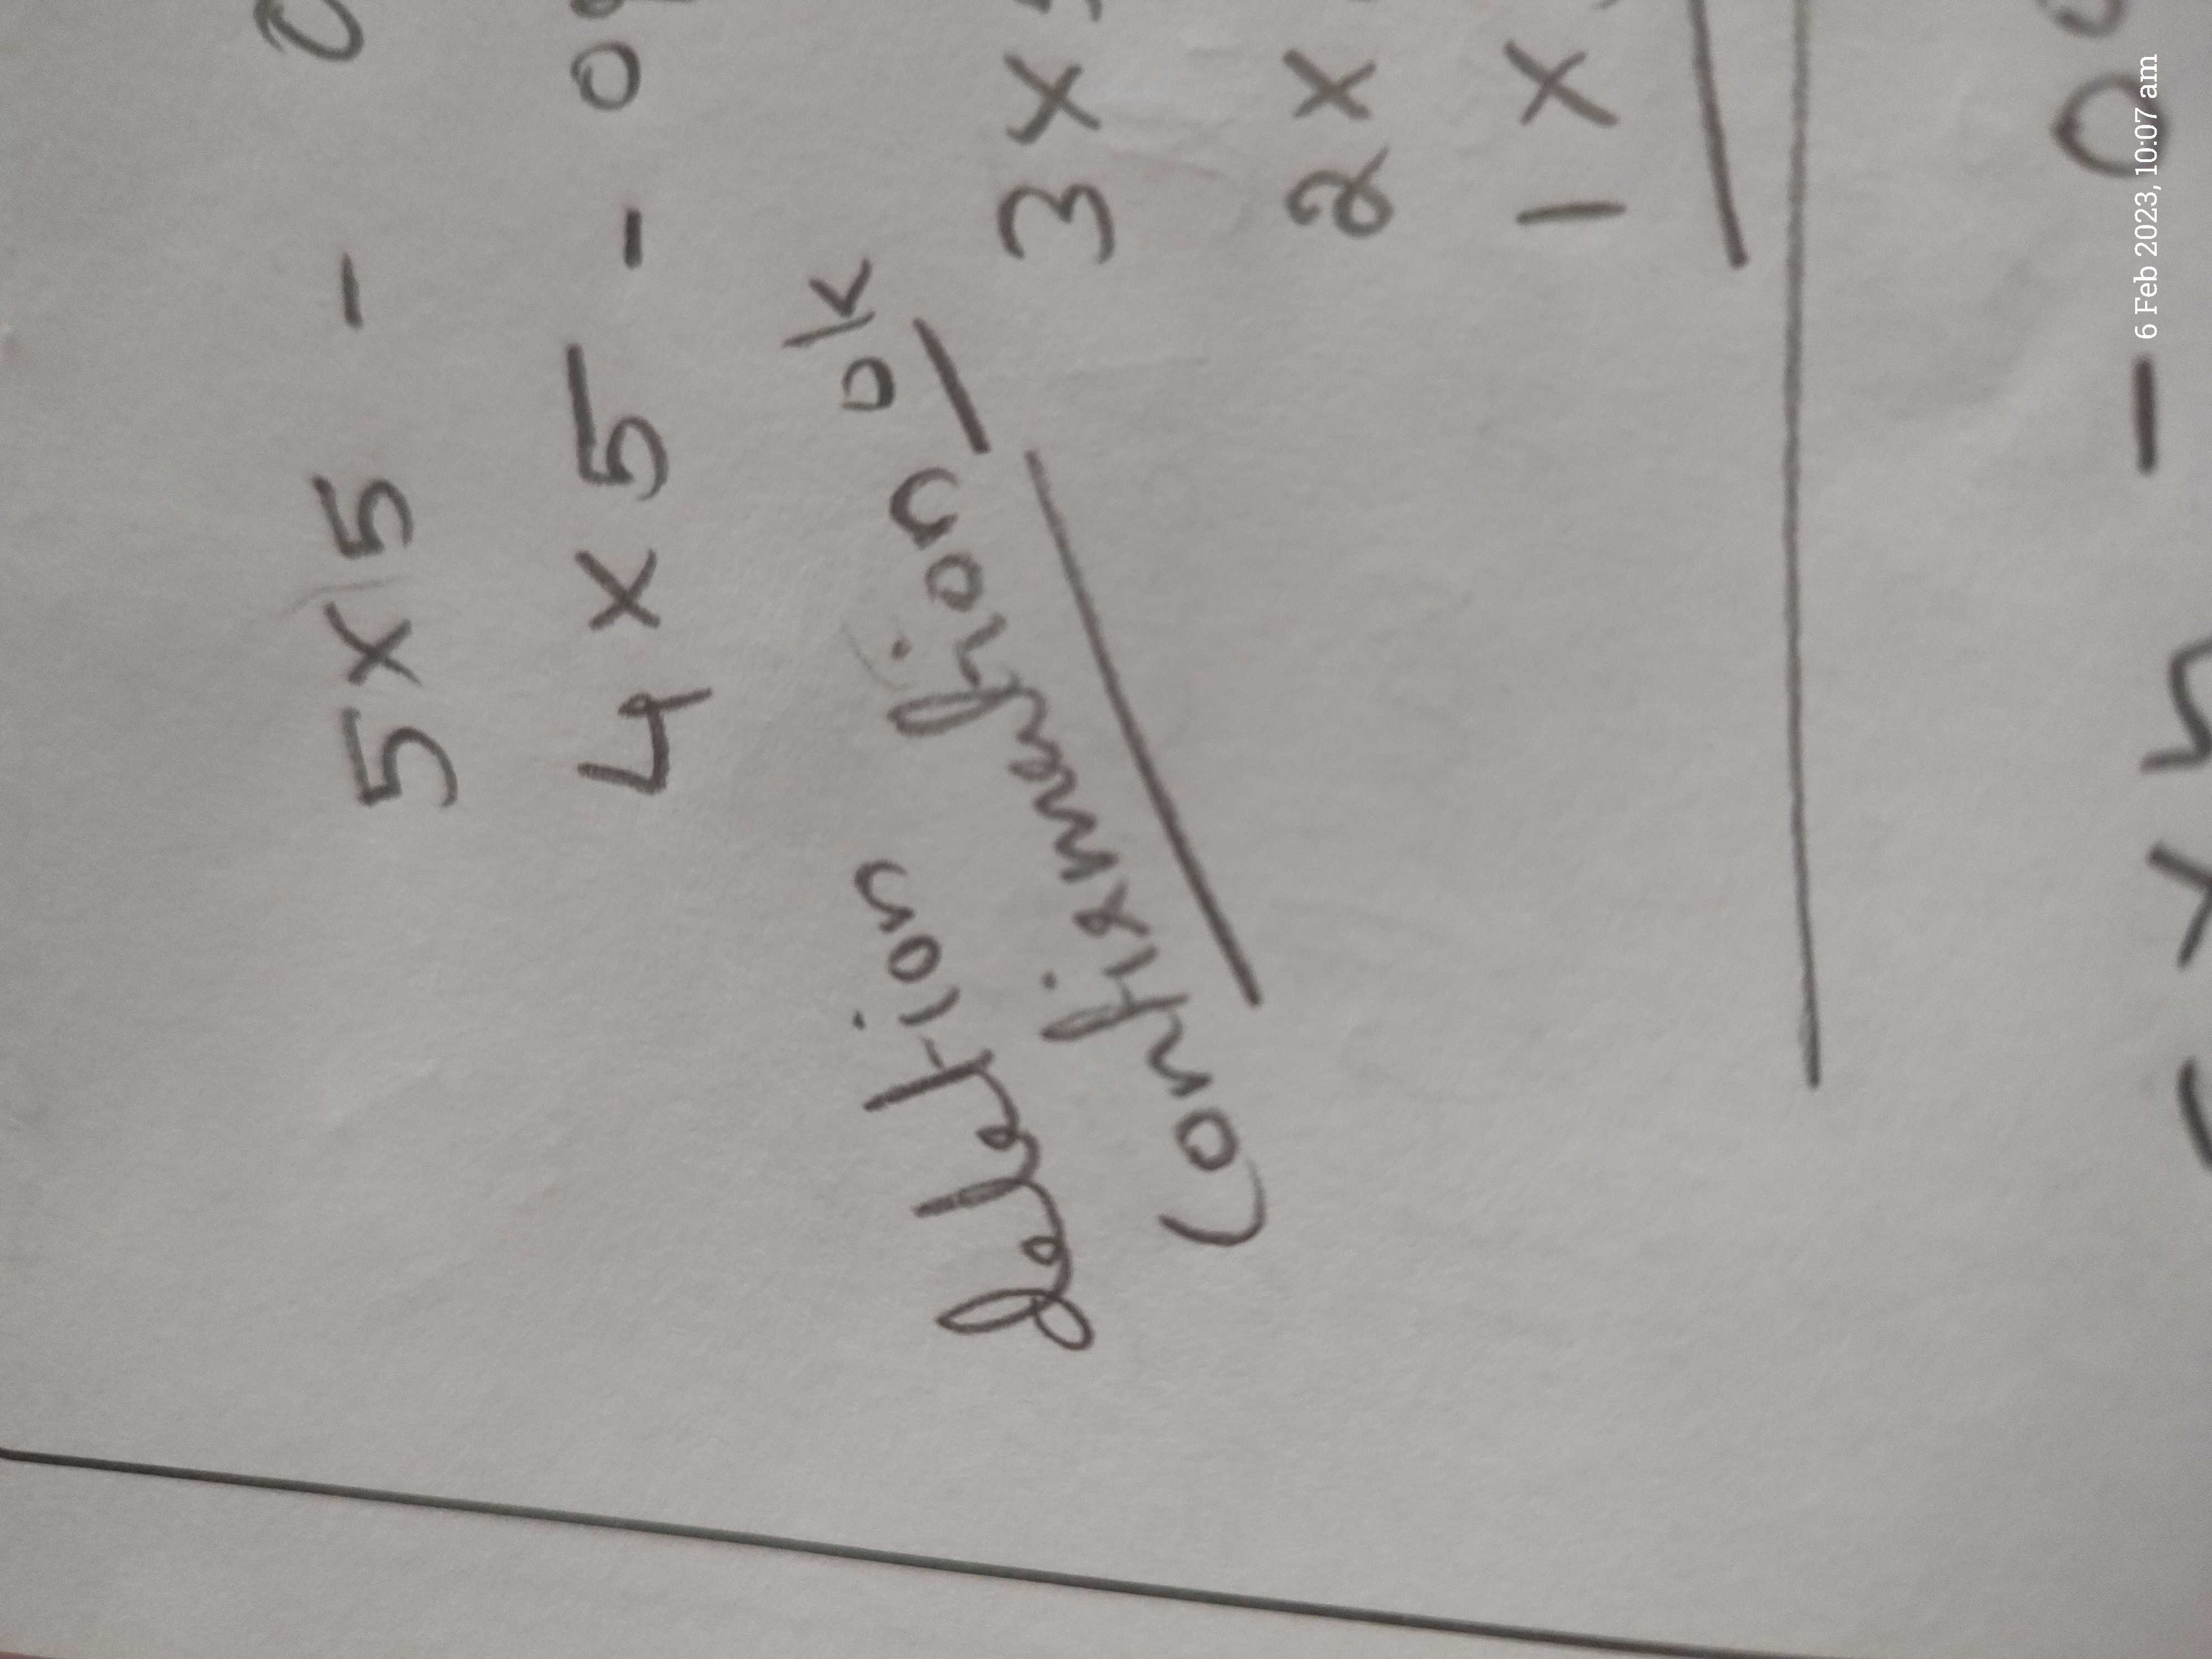 5 x 5 -
4 x 5 -
deletion
Confirmation ok
3 x
2 x
1 x
6 Feb 2023, 10:07 am